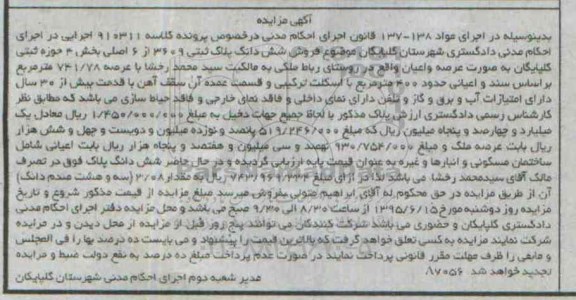 آگهی مزایده
بدینوسیله در اجرای مواد ۱۳۸-۱۳۷ قانون اجرای احکام مدنی درخصوص پرونده کلاسه ۹۱۰۳۱۱ اجرایی در اجرای
احکام مدنی دادگستری شهرستان گلپایگان موضوع فروش شش دانگ پلاک ثبتی ۳۶۰۹ از ۶ اصلی بخش ۴ حوزه ثبتی
گلپایگان به صورت عرصه واعیان واقع در روستای رباط ملکی به مالکیت سید محمد رخشا با عرصه ۷۴۱/۷۸ مترمربع
بر اساس سند و اعیانی حدود ۴۰۰ مترمربع با اسکلت ترکیبی و قسمت عمده آن سقف آهن با قدمت بیش از ۳۰ سال
دارای امتیازات آب و برق و گاز و تلفن دارای نمای داخلی و فاقد نمای خارجی و فاقد حیاط سازی می باشد که مطابق نظر
کارشناس رسمی دادگستری ارزش پلاک مذکور با لحاظ جمیع جهات دخیل به مبلغ ۱/۴۵۰/۰۰۰/۰۰۰ ریال معادل یک
میلیارد و چهارصد و پنجاه میلیون ریال که مبلغ ۵۱۹/۲۴۶/۰۰۰ پانصد و نوزده میلیون و دویست و چهل و شش هزار
ریال بابت عرصه ملک و مبلغ ۹۳۰/۷۵۴/۰۰۰ نهصد و سی میلیون و هفتصد و پنجاه هزار ریال بابت اعیانی شامل
ساختمان مسکونی و انبارها و غیره به عنوان قیمت پایه ارزیابی گردیده و در حال حاضر شش دانگ پلاک فوق در تصرف
مالک آقای سیدمحمد رخشا می باشد لذا در ازای مبلغ ۷۴۳/۹۶۱/۳۳۴ ریال به مقدار ۳/۰۸ (سه و هشت صدم دانگ)
آن از طریق مزایده در حق محکوم له آقای ابراهیم متولی بفروش میرسد مبلغ مزایده از قیمت مذکور شروع و تاریخ
مزایده روز دوشنبه مورخ ۱۳۹۵/۶/۱۵ از ساعت ۸/۳۰ الی ۹/۳۰ صبح می باشد و محل مزایده دفتر اجرای احکام مدنی
دادگستری گلپایگان و حضوری می باشد شرکت کنندگان می توانند پنج روز قبل از مزایده از محل دیدن و در مزایده
شرکت نمایند مزایده به کسی تعلق خواهد گرفت که بالاترین قیمت را پیشنهاد و می بایست ده درصد بها را فی المجلس
و مابقی را ظرف مهلت مقرر قانونی پرداخت نمایند در صورت عدم پرداخت مبلغ ده درصد به نفع دولت ضبط و مزایده
تجدید خواهد شد. ۸۷۰۵۶
مدیر شعبه دوم اجرای احکام مدنی شهرستان گلپایگان